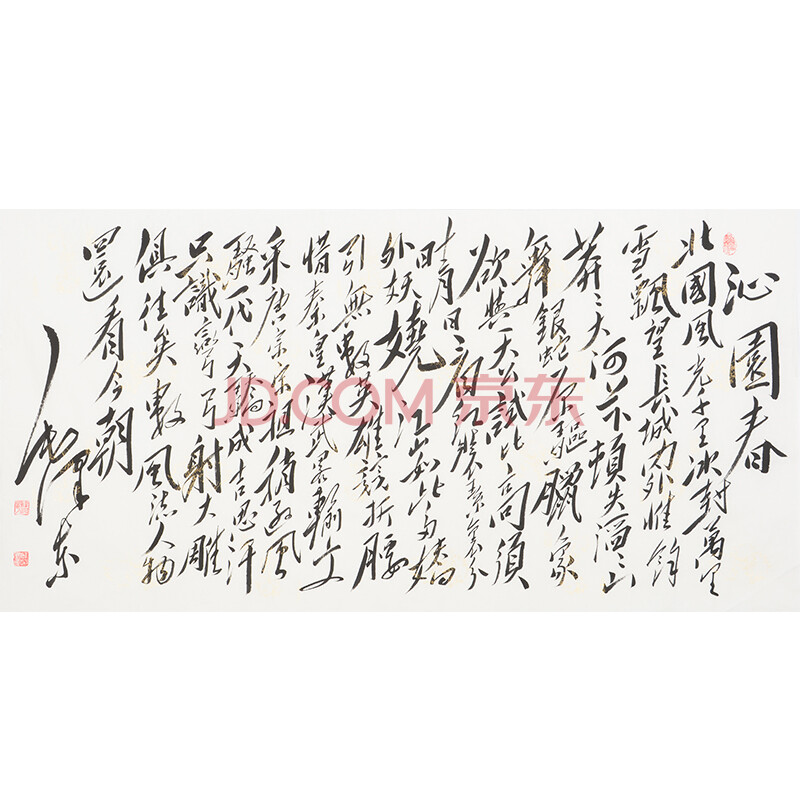 沁園春
北國風光千里冰封萬里
雪飄望長城內外惟餘
莽〻大河上下頓失滔〻山
舞銀蛇原驅臘象
欲與天公試比高須
晴日看紅裝素裹分
外妖嬈江山如此多嬌
引無數英雄競折腰
惜秦皇漢武略輸文
采唐宗宋祖稍遜風
騷一代天驕成吉思汗
只識彎弓射大雕
俱往矣數風流人物
還看今朝
毛澤東
JD.COM 京东